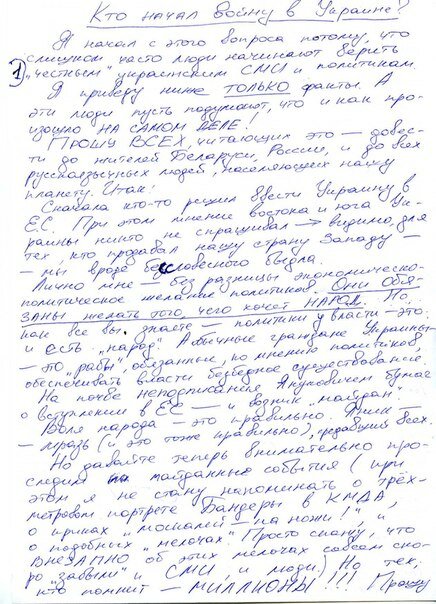 Кто начал войну в Украине?
Я начал с этого вопроса потому, что
слишком часто люди начинают верить
1) "честным" украинским СМИ и политикам.
Я приведу ниже ТОЛЬКО факты. А
эти люди пусть подумают, что и как про-
изошло НА САМОМ ДЕЛЕ!
ПРОШУ ВСЕХ, читающих это — довес-
ти до жителей Беларуси, России, и до всех
русскоязычных людей, населяющих нашу
планету. Итак:
Сначала кто-то решил ввести Украину в
ЕС. При этом мнение востока и юга Ук-
раины никто не спрашивал → видимо, для
тех, кто продавал нашу страну Западу —
— мы вроде бессловесного быдла.
Лично мне — без разницы экономическо-
политическое желание политиков. Они обя-
заны желать того, чего хочет НАРОД. Но,
как все вы знаете — политики у власти — это
и есть "народ". А обычные граждане Украины —
— это "рабы", обязанные, по мнению политиков,
обеспечивать власти безбедное существование.
На почве неподписания Януковичем бумаг
о вступлении в ЕС — и возник "майдан".
Воля народа — это правильно. Яник —
— мразь (и это тоже правильно), предавший всех.
Но давайте теперь внимательно про-
следим майданные события (при
этом я не стану напоминать о трёх-
метровом портрете Бандеры в КМДА,
о криках "москалей — на ножи!", и
о подобных "мелочах". Просто скажу, что
ВНЕЗАПНО об этих мелочах совсем ско-
ро "забыли" и СМИ, и люди.) Но тех,
кто помнит — МИЛЛИОНЫ!!! Прошу